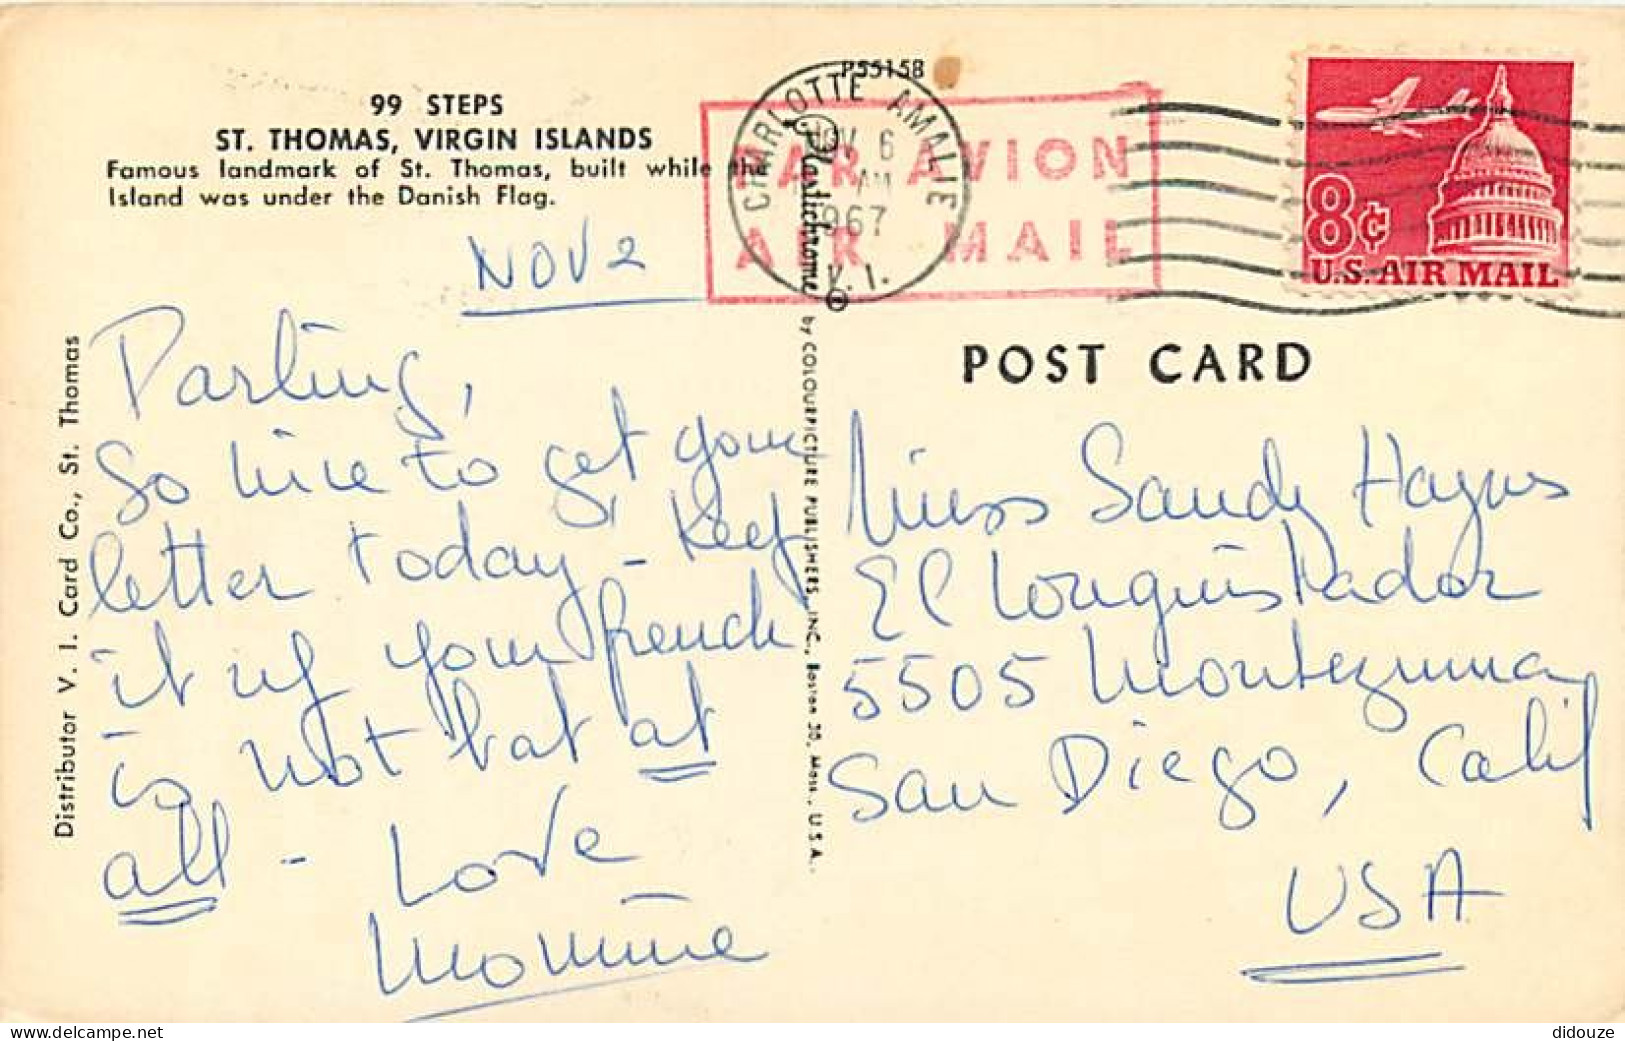 P55158
99 STEPS
ST. THOMAS, VIRGIN ISLANDS
Famous landmark of St. Thomas, built while the
Island was under the Danish Flag.
NOV 2
Darling,
So nice to get your
letter today - Keep
it up your french
is not bat at
all - Love
Distributor V. I. Card Co., St. Thomas
Plastichrome ®
by COLOURPICTURE PUBLISHERS, INC., Boston 30, Mass., U.S.A.
PAR AVION
AIR MAIL
CHARLOTTE AMALIE
NOV 6
AM
1967
V. I.
8¢
U.S. AIR MAIL
POST CARD
Miss Sandy Haynes
El Conquistador
5505 Montezuma
San Diego, Calif
USA
didouze
delcampe.net